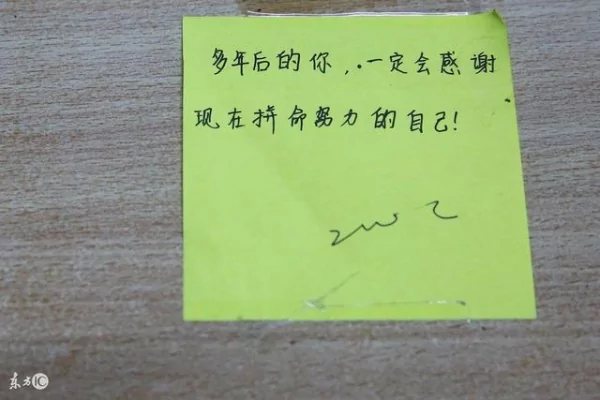 多年后的你，一定会感谢
现在拼命努力的自己!
东方IC